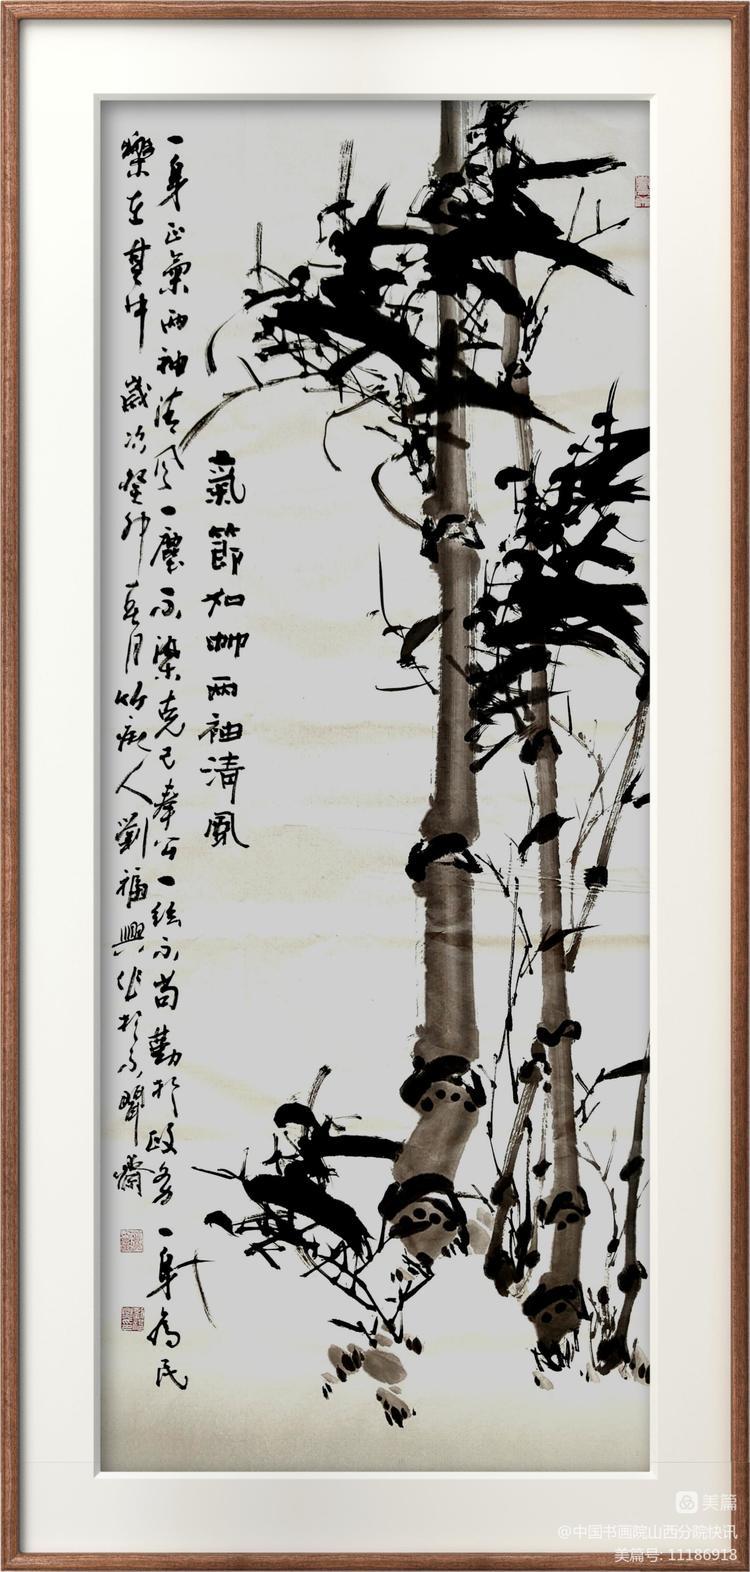 氣節如兩袖清風
一身正氣兩袖清風一塵不染克己奉公一絲不苟勤於政务一身為民
樂在其中歲次癸卯春月竹痴人劉福興作於不聞齋
美篇
@中国书画院山西分院快讯
美篇号: 11186918